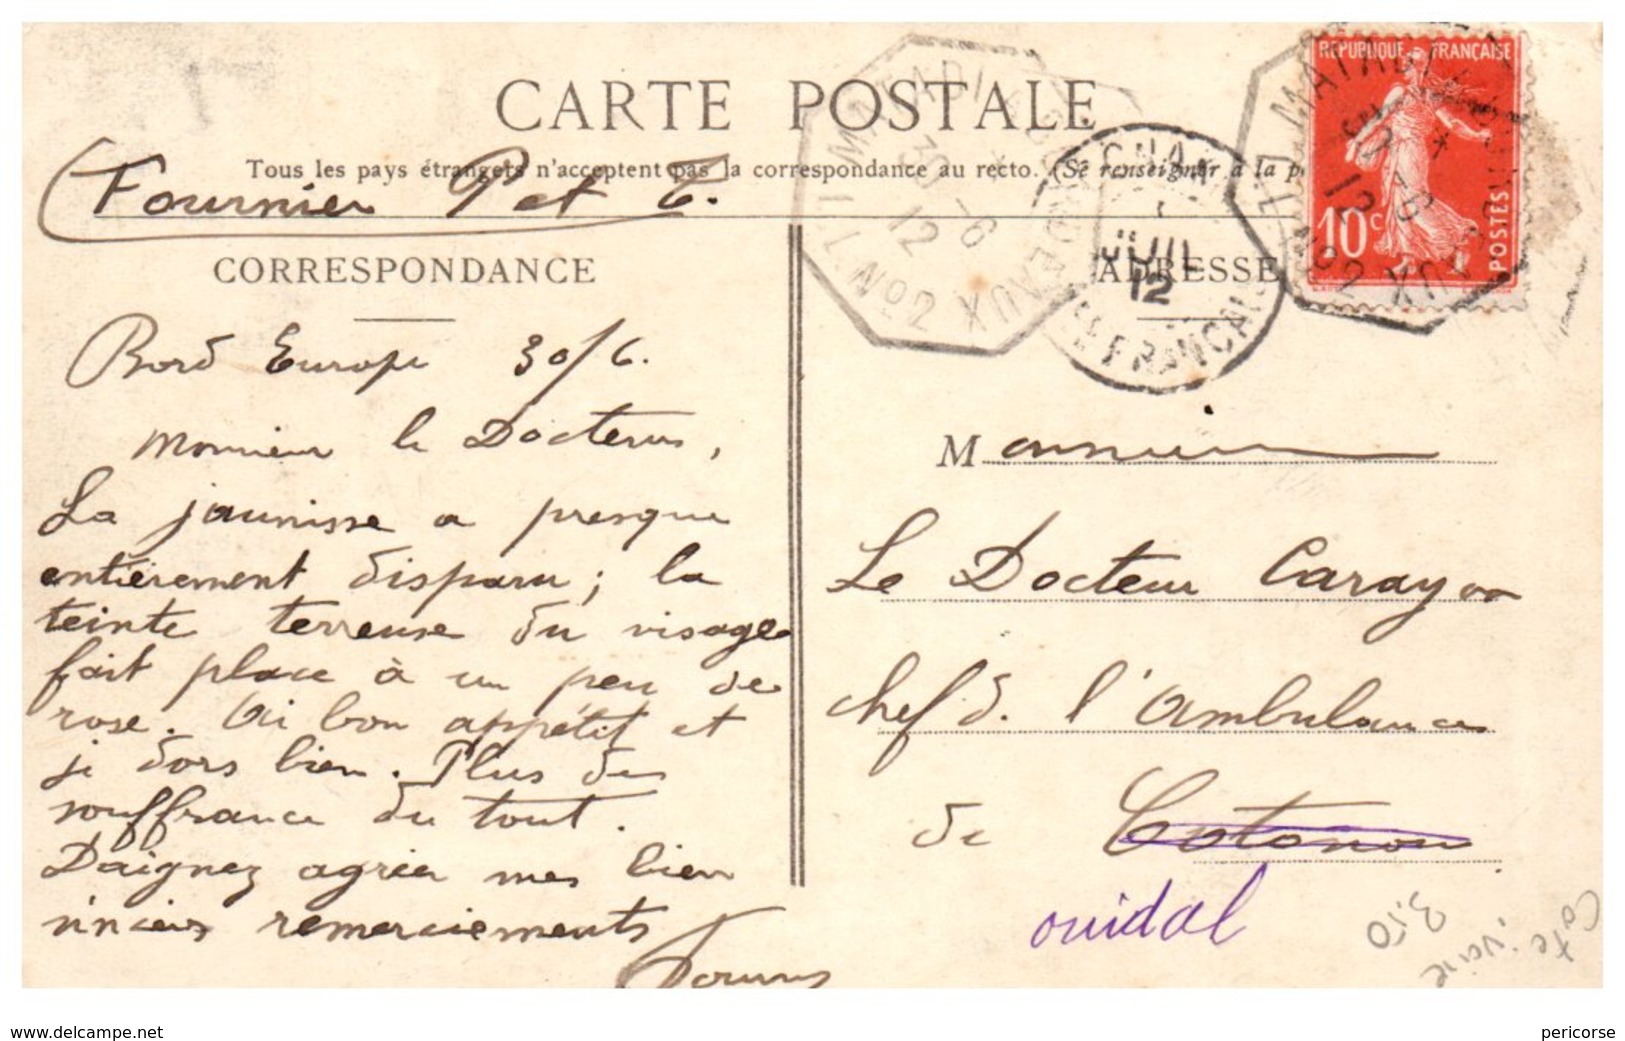 CARTE POSTALE
Tous les pays étrangers n'acceptent pas la correspondance au recto. (Se renseigner à la p
Fournier P et T.
CORRESPONDANCE
ADRESSE
REPUBLIQUE FRANÇAISE
10c
POSTES
MATADI
BORDEAUX
30 -6
12
L.L No2
MATADI
30 -6
12
L.L No2
JUIL
12
FRANÇAIS
Bord Europe 30/6.
Monsieur le Docteur,
La jaunisse a presque
entièrement disparu; la
teinte terreuse du visage
fait place à un peu de
rose. Ai bon appétit et
je dors bien. Plus de
souffrance du tout.
Daignez agréer mes bien
sincères remerciements
Monsieur
Le Docteur Carayon
chef d. l'Ambulance
de Cotonou
ouidal
Cote ivoire
3.50
www.delcampe.net
pericorse